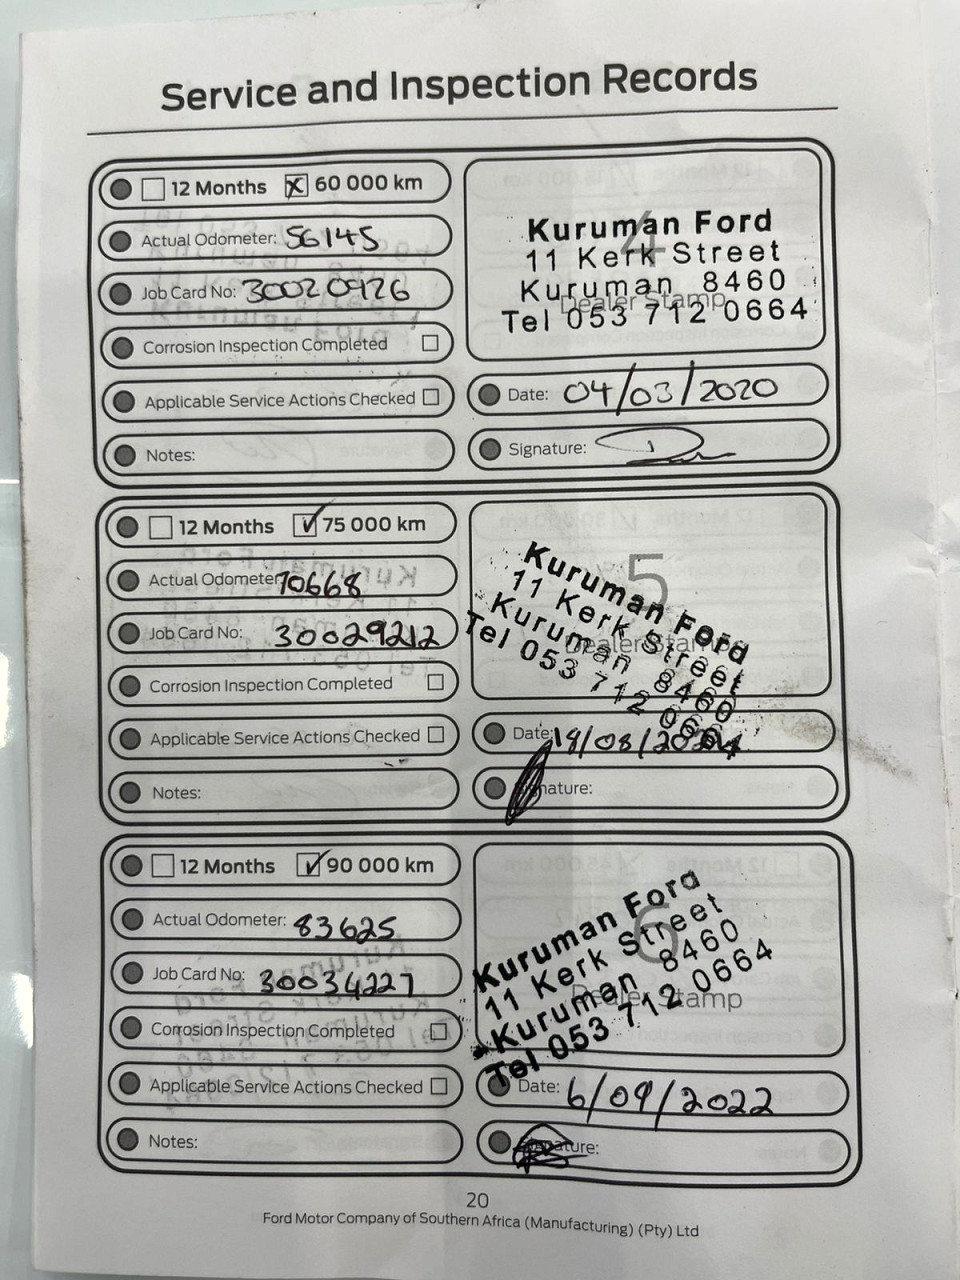 Service and Inspection Records
12 Months 60 000 km
Actual Odometer: 56145
Job Card No: 30020926
Corrosion Inspection Completed
Applicable Service Actions Checked
Notes:
4
Dealer Stamp
Kuruman Ford
11 Kerk Street
Kuruman 8460
Tel 053 712 0664
Date: 04/03/2020
Signature:
12 Months 75 000 km
Actual Odometer: 70668
Job Card No: 30029212
Corrosion Inspection Completed
Applicable Service Actions Checked
Notes:
5
Dealer Stamp
Kuruman Ford
11 Kerk Street
Kuruman 8460
Tel 053 712 0664
Date:
Signature:
12 Months 90 000 km
Actual Odometer: 83625
Job Card No: 30034227
Corrosion Inspection Completed
Applicable Service Actions Checked
Notes:
6
Dealer Stamp
Kuruman Ford
11 Kerk Street
Kuruman 8460
Tel 053 712 0664
Date: 6/09/2022
Signature:
20
Ford Motor Company of Southern Africa (Manufacturing) (Pty) Ltd